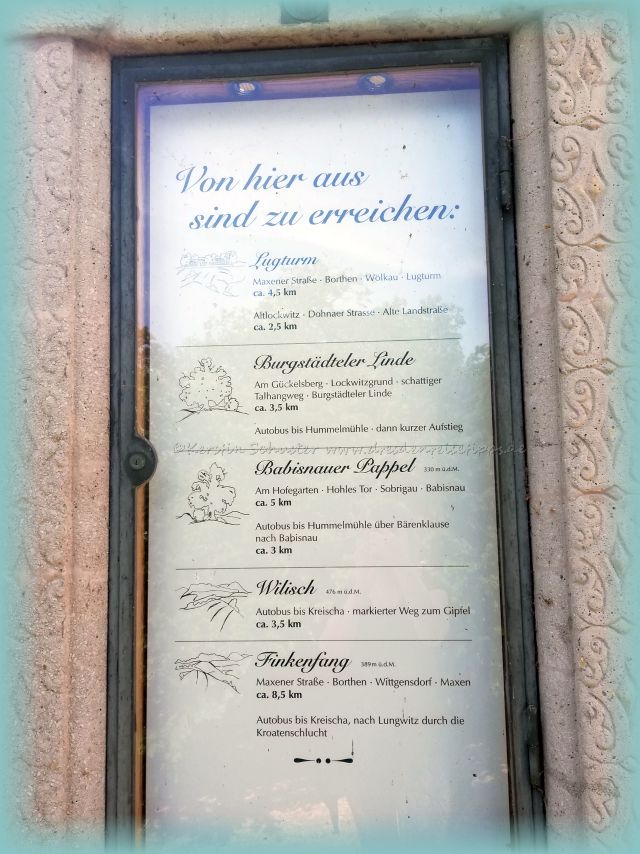 Von hier aus
sind zu erreichen:
Lugturm
Maxener Straße · Borthen · Wölkau · Lugturm
ca. 4,5 km
Altlockwitz · Dohnaer Strasse · Alte Landstraße
ca. 2,5 km
Burgstädteler Linde
Am Gückelsberg · Lockwitzgrund · schattiger
Talhangweg · Burgstädteler Linde
ca. 3,5 km
Autobus bis Hummelmühle · dann kurzer Aufstieg
©Kerstin Schuster www.dresden.reisetipps.de
Babisnauer Pappel 330 m ü.d.M.
Am Hofegarten · Hohles Tor · Sobrigau · Babisnau
ca. 5 km
Autobus bis Hummelmühle über Bärenklause
nach Babisnau
ca. 3 km
Wilisch 476 m ü.d.M.
Autobus bis Kreischa · markierter Weg zum Gipfel
ca. 3,5 km
Finkenfang 389 m ü.d.M.
Maxener Straße · Borthen · Wittgensdorf · Maxen
ca. 8,5 km
Autobus bis Kreischa, nach Lungwitz durch die
Kroatenschlucht